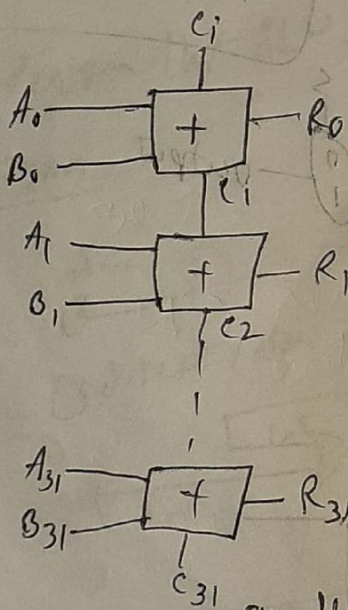 Ci
A0
+
R0
B0
C1
A1
+
R1
B1
C2
A31
+
R31
B31
C31